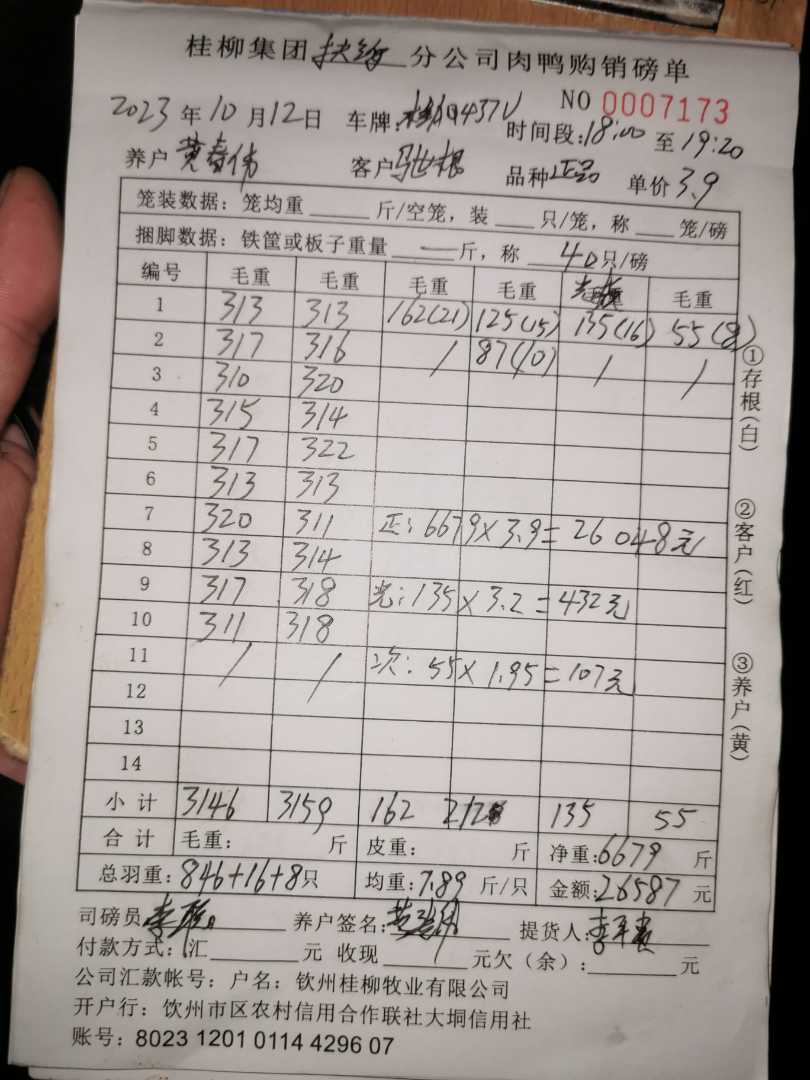 桂柳集团 扶绥 分公司肉鸭购销磅单
NO 0007173
2023年10月12日 车牌: 437U 时间段:18:00至19:20
养户 黄春伟 客户 根 品种 正品 单价 3.9
笼装数据: 笼均重____斤/空笼, 装___只/笼, 称___笼/磅
捆脚数据: 铁筐或板子重量____斤, 称 40只/磅
编号 毛重 毛重 毛重 毛重 光 毛重
1 313 313 162(21) 125(15) 135(16) 55(8)
2 317 316 / 87(10) / /
3 310 320
4 315 314
5 317 322
6 313 313
7 320 311 正: 6679×3.9=26048元
8 313 314
9 317 318 光: 135×3.2=432元
10 311 318
11 / / 次: 55×1.95=107元
12
13
14
小计 3146 3159 162 212 135 55
合计 毛重: 斤 皮重: 斤 净重:6679斤
总羽重:846+16+8只 均重:7.89斤/只 金额:26587元
司磅员 李 养户签名: 黄春伟 提货人: 李
付款方式:汇____元 收现____元欠(余):____元
公司汇款帐号: 户名: 钦州桂柳牧业有限公司
开户行: 钦州市区农村信用合作联社大垌信用社
账号: 8023 1201 0114 4296 07
①存根(白)
②客户(红)
③养户(黄)